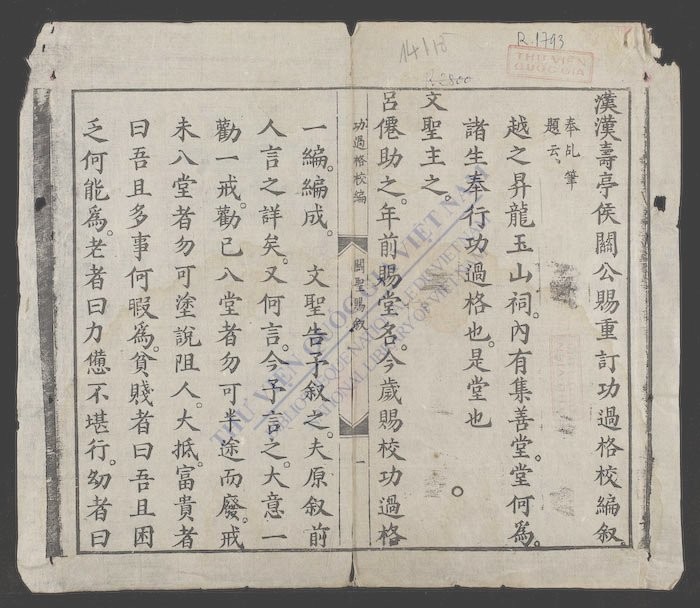 R.1793
14115
R.2800
THƯ VIỆN
QUỐC GIA
漢漢壽亭侯關公賜重訂功過格校編叙。
奉乩筆
題云、
越之昇龍玉山祠。內有集善堂。堂何爲。
諸生奉行功過格也。是堂也
文聖主之。
呂僊助之。年前賜堂名。今歲賜校功過格
功過格校編
關聖賜叙
一
一編。編成。文聖告予叙之。夫原叙前
人言之詳矣。又何言。今予言之。大意一
勸一戒。勸已入堂者勿可半途而廢。戒
未入堂者勿可塗說阻人。大抵富貴者
曰吾且多事何暇爲。貧賤者曰吾且困
乏何能爲。老者曰力憊不堪行。幼者曰
THƯ VIỆN QUỐC GIA VIỆT NAM
BIBLIOTHEQUE NATIONALE DU VIETNAM
NATIONAL LIBRARY OF VIETNAM